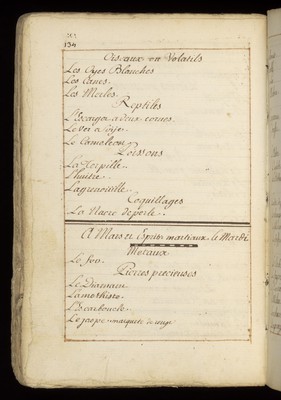 134
Oiseaux ou Volatils
Les Oyes Blanches
Les Canes
Les Merles
Reptilles
L'Escargot a deux cornes
Le Ver a soye
Le Cameleon
Poissons
La Torpille
L'huitre
La grenouille
Coquillages
La Nacre de perle
A Mars et Esprits martiaux le Mardi
Metaux
Le fer
Pierres precieuses
Le Diamant
L'amethiste
L'Escarboucle
Le jaspe marqueté de rouge